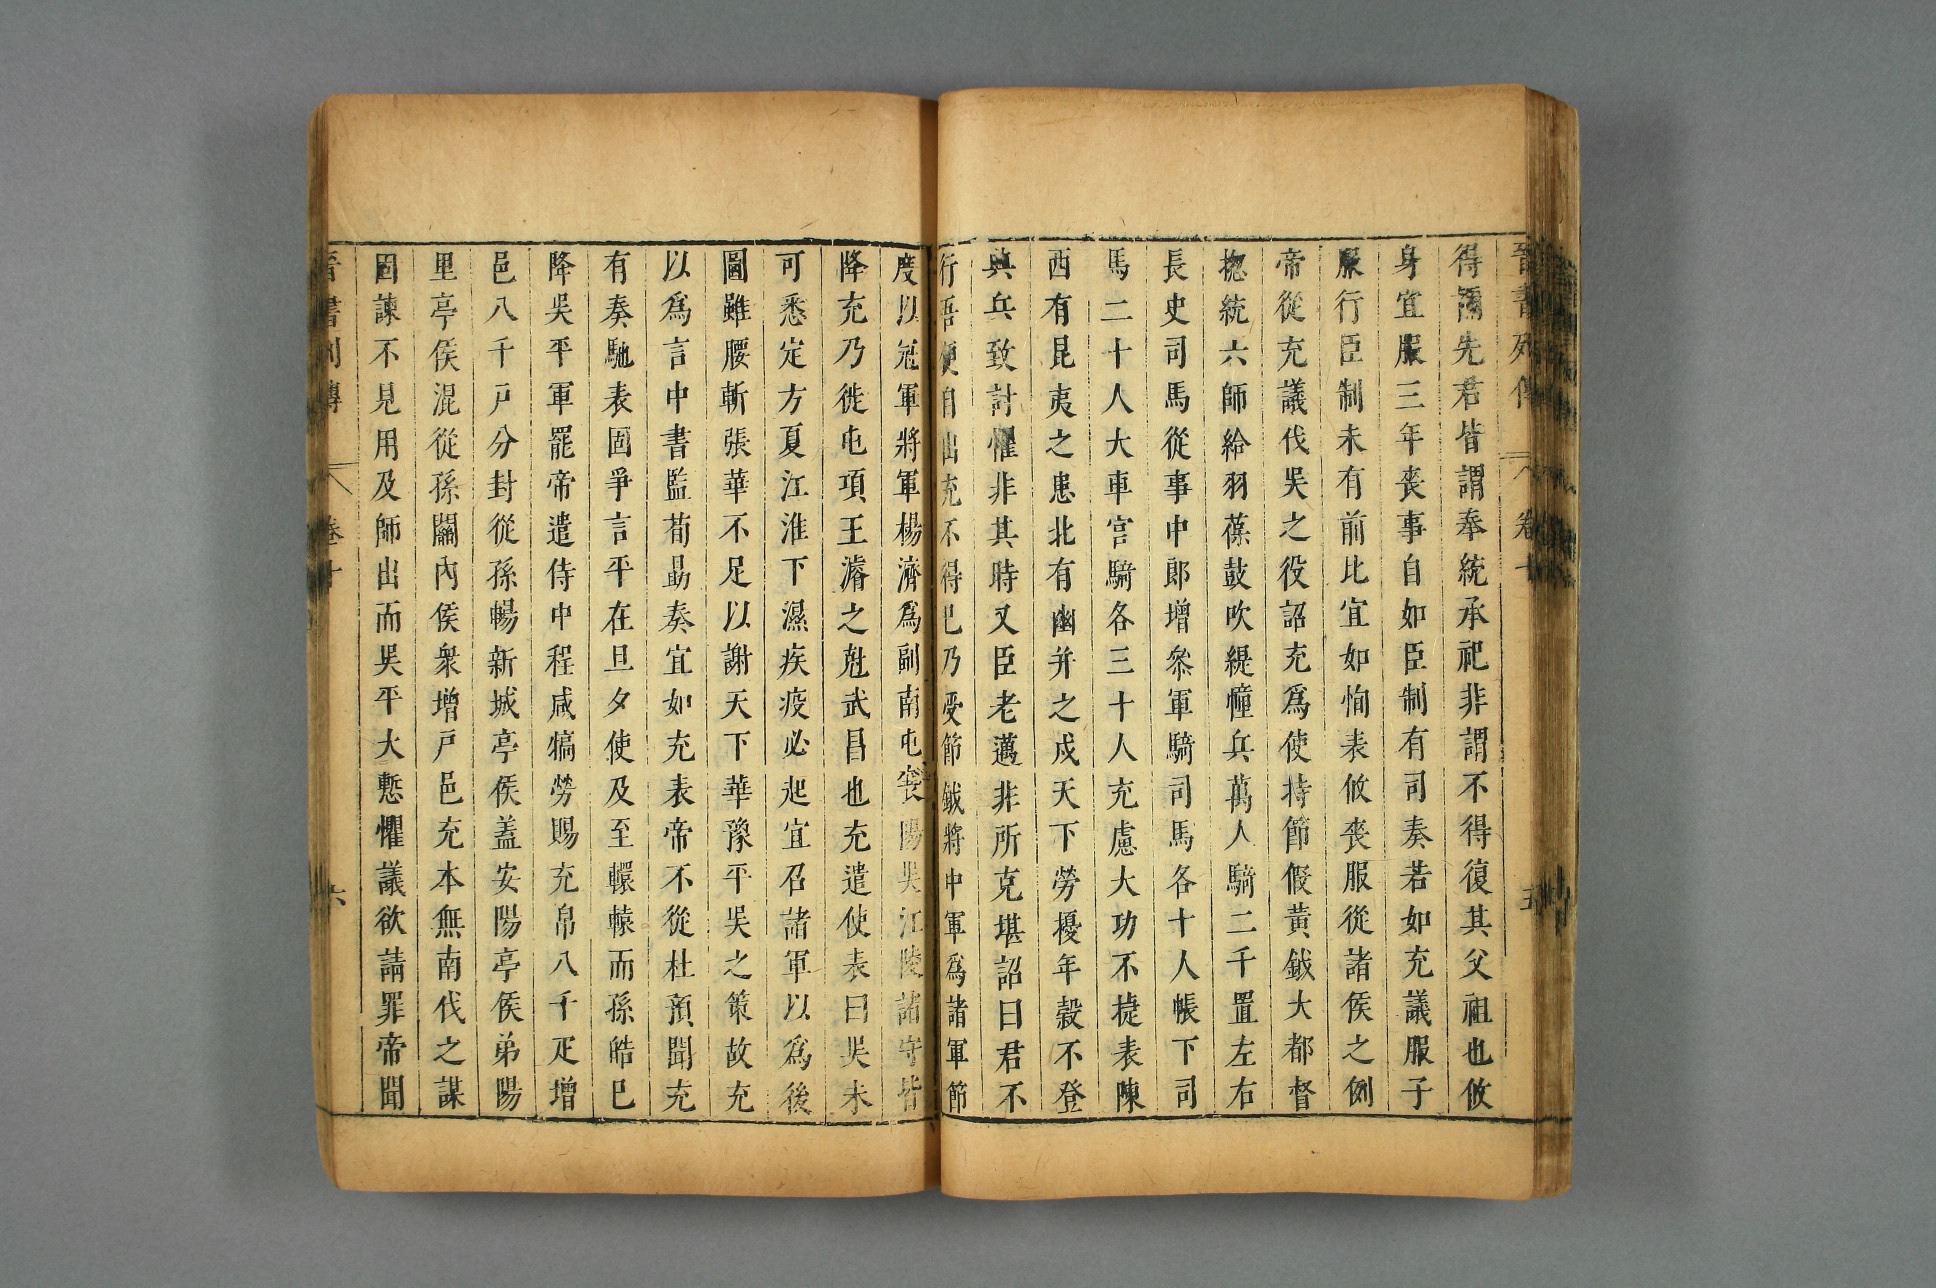 晉書列傳 卷十 五
得謂先君皆謂奉統承祀非謂不得復其父祖也攸
身宜服三年喪事自如臣制有司奏若如充議服子
服行臣制未有前比宜如恂表攸喪服從諸侯之例
帝從充議伐吳之役詔充爲使持節假黃鉞大都督
揔統六師給羽葆鼓吹緹幢兵萬人騎二千置左右
長史司馬從事中郎增參軍騎司馬各十人帳下司
馬二十人大車官騎各三十人充慮大功不捷表陳
西有昆夷之患北有幽并之戍天下勞擾年穀不登
興兵致討懼非其時又臣老邁非所克堪詔曰君不
行吾便自出充不得已乃受節鉞將中軍爲諸軍節
度以冠軍將軍楊濟爲副南屯襄陽吳江陵諸守皆
降充乃徙屯項王濬之尅武昌也充遣使表曰吳未
可悉定方夏江淮下濕疾疫必起宜召諸軍以爲後
圖雖腰斬張華不足以謝天下華豫平吳之策故充
以爲言中書監荀勗奏宜如充表帝不從杜預聞充
有奏馳表固爭言平在旦夕使及至轘轅而孫皓巳
降吳平軍罷帝遣侍中程咸犒勞賜充帛八千疋增
邑八千戸分封從孫暢新城亭侯蓋安陽亭侯弟陽
里亭侯混從孫關內侯衆增戸邑充本無南伐之謀
固諫不見用及師出而吳平大慙懼議欲請罪帝聞
晉書列傳 卷十 六